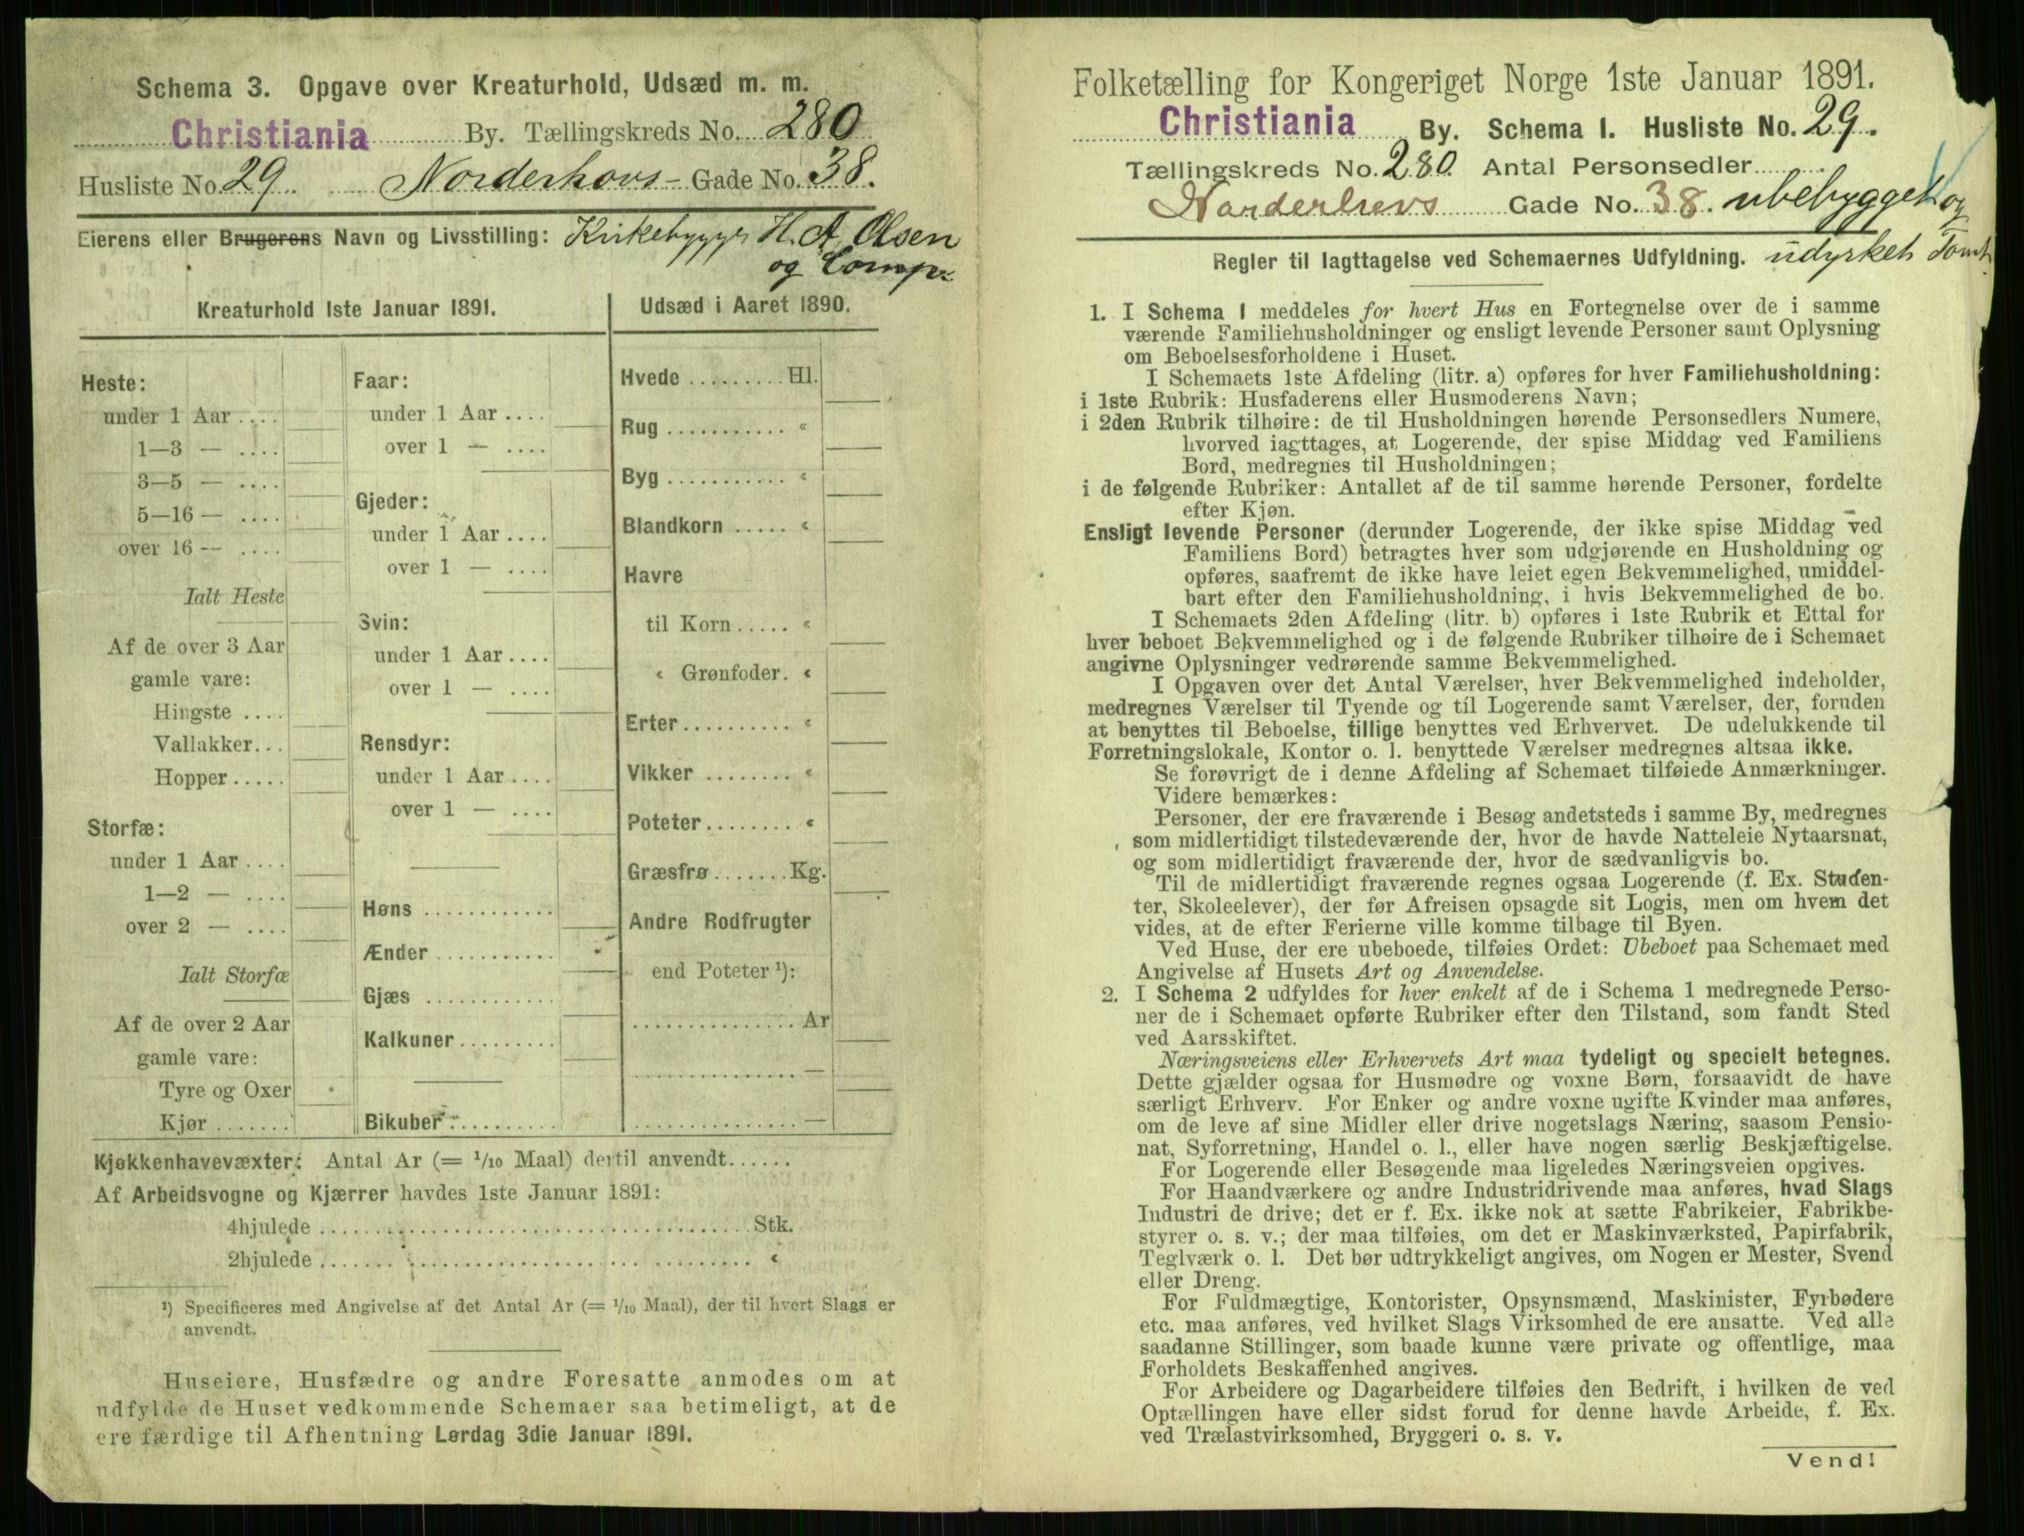 Schema 3. Opgave over Kreaturhold, Udsæd m. m.
Christiania By. Tællingskreds No. 280
Husliste No. 29. Norderhovs- Gade No. 38.
Eierens eller Brugerens Navn og Livsstilling: Kirkebygger H. A. Olsen
og Comp.
Kreaturhold 1ste Januar 1891.
Heste:
under 1 Aar ....
1—3 — ....
3—5 — ....
5—16 — ....
over 16 — ....
Ialt Heste
Af de over 3 Aar
gamle vare:
Hingste ....
Vallakker...
Hopper .....
Storfæ:
under 1 Aar ....
1—2 — ....
over 2 — ....
Ialt Storfæ
Af de over 2 Aar
gamle vare:
Tyre og Oxer
Kjør .......
Faar:
under 1 Aar ....
over 1 — ....
Gjeder:
under 1 Aar ....
over 1 — ....
Svin:
under 1 Aar ....
over 1 — ....
Rensdyr:
under 1 Aar ....
over 1 — ....
Høns ............
Ænder ...........
Gjæs ............
Kalkuner.........
Bikuber..........
Udsæd i Aaret 1890.
Hvede .........Hl.
Rug ........... «
Byg ........... «
Blandkorn ..... «
Havre
til Korn ..... «
« Grønfoder. «
Erter.......... «
Vikker ........ «
Poteter........ «
Græsfrø.......Kg.
Andre Rodfrugter
end Poteter ¹):
...............Ar
...............—
...............—
Kjøkkenhavevæxter: Antal Ar (= 1/10 Maal) dertil anvendt......
Af Arbeidsvogne og Kjærrer havdes 1ste Januar 1891:
4hjulede ........................................ Stk.
2hjulede ........................................ «
¹) Specificeres med Angivelse af det Antal Ar (= 1/10 Maal), der til hvert Slags er
anvendt.
Huseiere, Husfædre og andre Foresatte anmodes om at
udfylde de Huset vedkommende Schemaer saa betimeligt, at de
ere færdige til Afhentning Lørdag 3die Januar 1891.
Folketælling for Kongeriget Norge 1ste Januar 1891.
Christiania By. Schema 1. Husliste No. 29.
Tællingskreds No. 280. Antal Personsedler........
Norderhovs Gade No. 38. ubebygget og
udyrket Tomt.
Regler til Iagttagelse ved Schemaernes Udfyldning.
1. I Schema 1 meddeles for hvert Hus en Fortegnelse over de i samme
værende Familiehusholdninger og ensligt levende Personer samt Oplysning
om Beboelsesforholdene i Huset.
I Schemaets 1ste Afdeling (litr. a) opføres for hver Familiehusholdning:
i 1ste Rubrik: Husfaderens eller Husmoderens Navn;
i 2den Rubrik tilhøire: de til Husholdningen hørende Personsedlers Numere,
hvorved iagttages, at Logerende, der spise Middag ved Familiens
Bord, medregnes til Husholdningen;
i de følgende Rubriker: Antallet af de til samme hørende Personer, fordelte
efter Kjøn.
Ensligt levende Personer (derunder Logerende, der ikke spise Middag ved
Familiens Bord) betragtes hver som udgjørende en Husholdning og
opføres, saafremt de ikke have leiet egen Bekvemmelighed, umiddel-
bart efter den Familiehusholdning, i hvis Bekvemmelighed de bo.
I Schemaets 2den Afdeling (litr. b) opføres i 1ste Rubrik et Ettal for
hver beboet Bekvemmelighed og i de følgende Rubriker tilhøire de i Schemaet
angivne Oplysninger vedrørende samme Bekvemmelighed.
I Opgaven over det Antal Værelser, hver Bekvemmelighed indeholder,
medregnes Værelser til Tyende og til Logerende samt Værelser, der, foruden
at benyttes til Beboelse, tillige benyttes ved Erhvervet. De udelukkende til
Forretningslokale, Kontor o. l. benyttede Værelser medregnes altsaa ikke.
Se forøvrigt de i denne Afdeling af Schemaet tilføiede Anmærkninger.
Videre bemærkes:
Personer, der ere fraværende i Besøg andetsteds i samme By, medregnes
som midlertidigt tilstedeværende der, hvor de havde Natteleie Nytaarsnat,
og som midlertidigt fraværende der, hvor de sædvanligvis bo.
Til de midlertidigt fraværende regnes ogsaa Logerende (f. Ex. Studen-
ter, Skoleelever), der før Afreisen opsagde sit Logis, men om hvem det
vides, at de efter Ferierne ville komme tilbage til Byen.
Ved Huse, der ere ubeboede, tilføies Ordet: Ubeboet paa Schemaet med
Angivelse af Husets Art og Anvendelse.
2. I Schema 2 udfyldes for hver enkelt af de i Schema 1 medregnede Perso-
ner de i Schemaet opførte Rubriker efter den Tilstand, som fandt Sted
ved Aarsskiftet.
Næringsveiens eller Erhvervets Art maa tydeligt og specielt betegnes.
Dette gjælder ogsaa for Husmødre og voxne Børn, forsaavidt de have
særligt Erhverv. For Enker og andre voxne ugifte Kvinder maa anføres,
om de leve af sine Midler eller drive nogetslags Næring, saasom Pensio-
nat, Syforretning, Handel o. l., eller have nogen særlig Beskjæftigelse.
For Logerende eller Besøgende maa ligeledes Næringsveien opgives.
For Haandværkere og andre Industridrivende maa anføres, hvad Slags
Industri de drive; det er f. Ex. ikke nok at sætte Fabrikeier, Fabrikbe-
styrer o. s. v.; der maa tilføies, om det er Maskinværksted, Papirfabrik,
Teglværk o. l. Det bør udtrykkeligt angives, om Nogen er Mester, Svend
eller Dreng.
For Fuldmægtige, Kontorister, Opsynsmænd, Maskinister, Fyrbødere
etc. maa anføres, ved hvilket Slags Virksomhed de ere ansatte. Ved alle
saadanne Stillinger, som baade kunne være private og offentlige, maa
Forholdets Beskaffenhed angives.
For Arbeidere og Dagarbeidere tilføies den Bedrift, i hvilken de ved
Optællingen have eller sidst forud for denne havde Arbeide, f. Ex.
ved Trælastvirksomhed, Bryggeri o. s. v.
Vend!